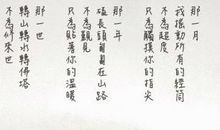 那一月
我搖動所有的經筒
不為超度
只為觸摸你的指尖
那一年
磕長頭匍匐在山路
不為覲見
只為貼著你的溫暖
那一世
轉山轉水轉佛塔
不為修來世